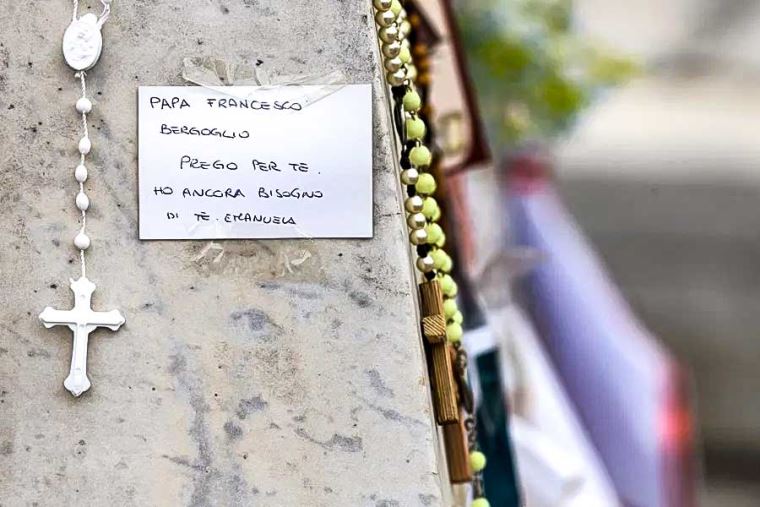 PAPA FRANCESCO
BERGOGLIO
PREGO PER TE.
HO ANCORA BISOGNO
DI TE. EMANUELA